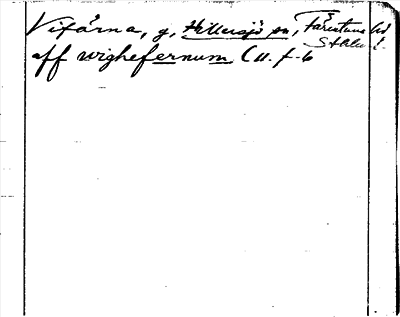 Vifärna, g, Hillersjö sn, Färentuna hd
Sthlm l.
aff wighefernum (u. f. b